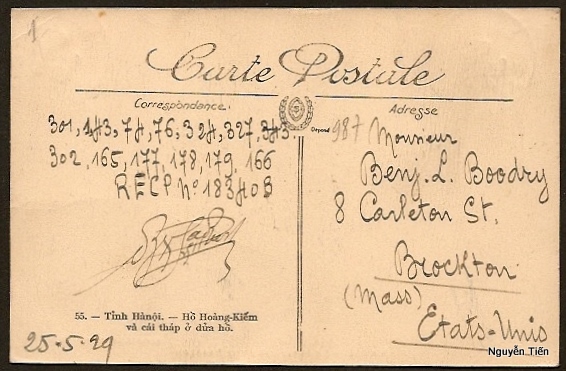 1
Carte Postale
Correspondance.
Adresse
Déposé
301, 143, 74, 76, 324, 327, 343
302, 165, 177, 178, 179, 166
RECP Nº 183408
987 Monsieur
Benj. L. Boodry
8 Carleton St.
Brockton
(Mass)
Etats-Unis
55. — Tỉnh Hànội. — Hồ Hoàng-Kiếm
và cái tháp ở dửa hồ.
25-5-29
Nguyễn Tiến